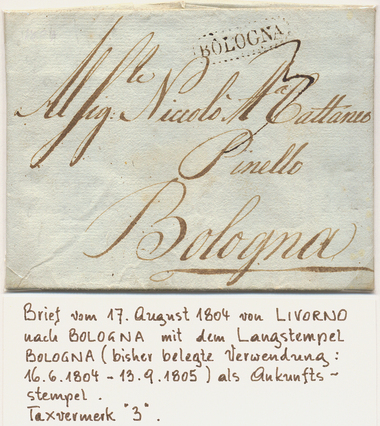 BOLOGNA
3
All Sig.le Niccolò Ma. Cattaneo
Pinello
Bologna
Brief vom 17. August 1804 von LIVORNO
nach BOLOGNA mit dem Langstempel
BOLOGNA (bisher belegte Verwendung:
16.6.1804 - 13.9.1805) als Ankunfts-
stempel.
Taxvermerk "3".